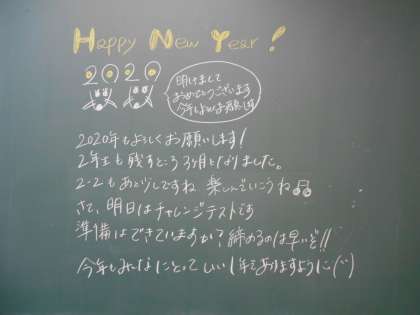 Happy New Year!
2020
明けまして
おめでとうございます
今年もよろしくお願いします
2020年もよろしくお願いします!
2年生も残すところ3ヶ月となりました。
2-2もあと少しですね 楽しんでいこうね
さて、明日はチャレンジテストです
準備はできていますか?諦めるのは早いぞ!!
今年もみんなにとっていい1年でありますように(^^)